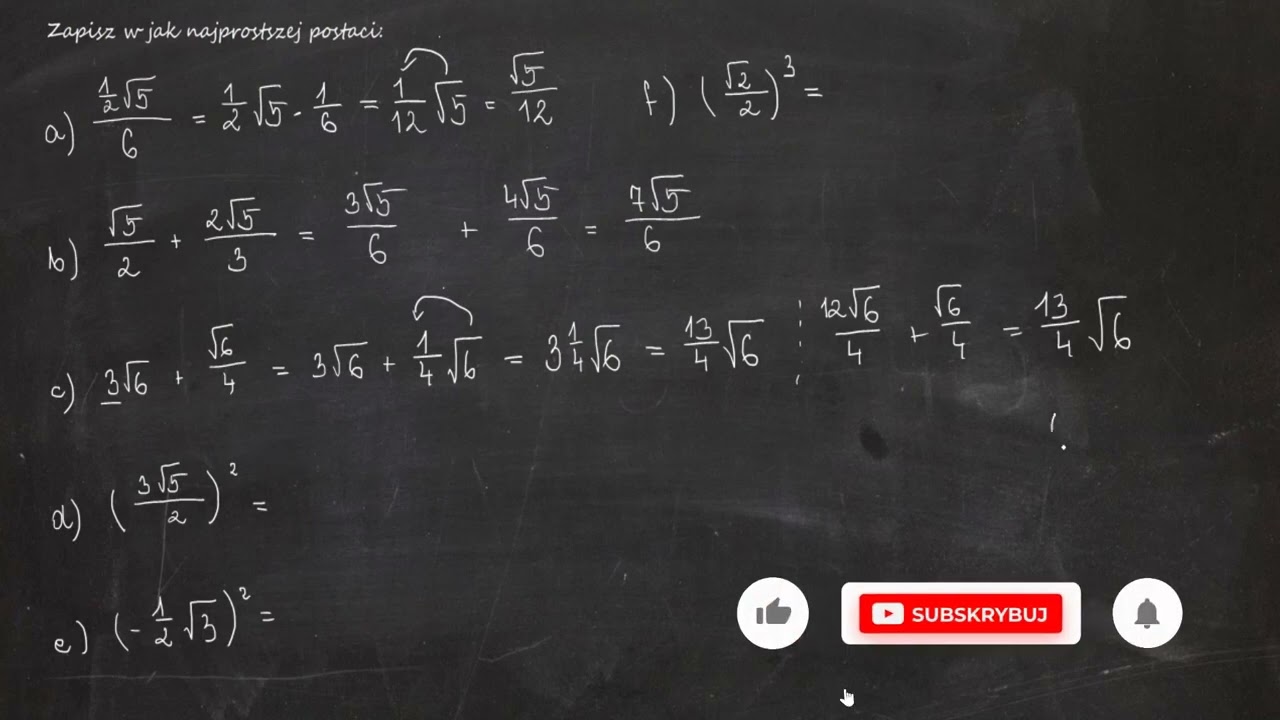 Zapisz w jak najprostszej postaci:
a) \frac{\frac{1}{2}√5}{6} = \frac{1}{2}√5 · \frac{1}{6} = \frac{1}{12}√5 = \frac{√5}{12}
f) (\frac{√2}{2})³ =
b) \frac{√5}{2} + \frac{2√5}{3} = \frac{3√5}{6} + \frac{4√5}{6} = \frac{7√5}{6}
c) 3√6 + \frac{√6}{4} = 3√6 + \frac{1}{4}√6 = 3\frac{1}{4}√6 = \frac{13}{4}√6
\frac{12√6}{4} + \frac{√6}{4} = \frac{13}{4}√6
d) (\frac{3√5}{2})² =
e) (-\frac{1}{2}√3)² =
SUBSKRYBUJ